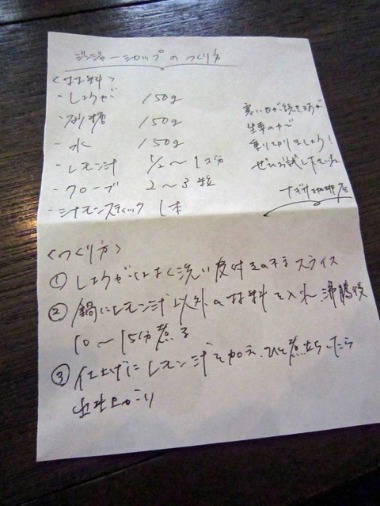 ジンジャーシロップのつくり方
<材料>
・しょうが 150g
・砂糖 150g
・水 150g
・レモン汁 1/2〜1コ分
・クローブ 2〜3粒
・シナモンスティック 1本
寒い日が続きますが
生姜の力で
乗り切りましょう!
ぜひお試し下さいね
<つくり方>
① しょうがはよく洗い皮付きのままスライス
② 鍋にレモン汁以外の材料を入れ沸騰後
10〜15分煮る
③ 仕上げにレモン汁を加え、ひと煮立ちしたら
出来上がり